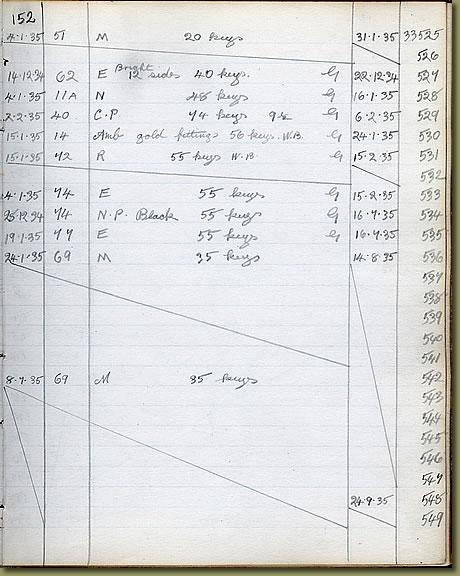 152
4·1·35 51 M 20 keys 31·1·35 33525
526
14·12·34 62 E Bright 12 sides 40 keys. G 22·12·34 527
4·1·35 11A N 48 keys G 16·1·35 528
2·2·35 40 C.P 74 keys G 6·2·35 529
15·1·35 14 Amb gold fittings 56 keys. W.B. G 24·1·35 530
15·1·35 72 R 55 keys W.B. G 15·2·35 531
532
4·1·35 74 E 55 keys G 15·2·35 533
74 N.P. Black 55 keys G 16·7·35 534
19·1·35 77 E 55 keys G 16·7·35 535
24·1·35 69 M 35 keys 14·8·35 536
537
538
539
540
541
8·7·35 69 M 35 keys 542
543
544
545
546
547
24·9·35 548
549